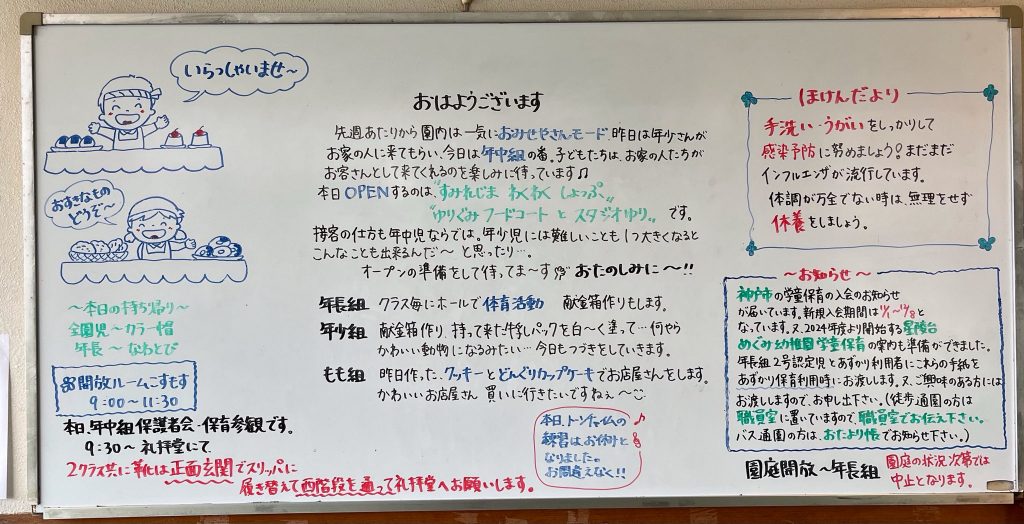 いらっしゃいませ～
おすきなもの
どうぞ～
～本日の持ち帰り～
全園児～カラー帽
年長～なわとび
開放ルームこすもす
9:00～11:30
本日、年中組保護者会・保育参観です。
9:30～礼拝堂にて
2クラス共に靴は正面玄関でスリッパに
履き替えて西階段を通って礼拝堂へお願いします。
おはようございます
先週あたりから園内は一気におみせやさんモード。昨日は年少さんが
お家の人に来てもらい、今日は年中組の番。子どもたちは、お家の人たちが
お客さんとして来てくれるのを楽しみに待っています♫
本日OPENするのは、"すみれじま わくわく しょっぷ"
"ゆりぐみフードコート と スタジオゆり" です。
接客の仕方も年中児ならでは。年少児には難しいことも1つ大きくなると
こんなことも出来るんだ～ と思ったり…。
オープンの準備をして待ってま～す おたのしみに～!!
年長組 クラス毎にホールで体育活動 献金箱作りもします。
年少組 献金箱作り、持って来た牛乳パックを白～く塗って…何やら
かわいい動物になるみたい…今日もつづきをしていきます。
もも組 昨日作った、クッキーとどんぐりカップケーキでお店屋さんをします。
かわいいお店屋さん 買いに行きたいですねぇ～
本日、トーンチャイムの
練習はお休みと
なりました。
お間違えなく!!
ほけんだより
手洗い・うがいをしっかりして
感染予防に努めましょう！まだまだ
インフルエンザが流行しています。
体調が万全でない時は、無理をせず
休養をしましょう。
～お知らせ～
神戸市の学童保育の入会のお知らせ
が届いています。新規入会期間は
なっています。又、2024年度より開始する星陵台
めぐみ幼稚園学童保育の案内も準備ができました。
年長組2号認定児とあずかり利用者にこれらの手紙を
あずかり保育利用時にお渡しします。又、ご興味のある方には
お渡ししますので、お申し出下さい。（徒歩通園の方は
職員室に置いていますので、職員室でお伝え下さい。
バス通園の方は、おたより帳でお知らせ下さい。）
園庭開放～年長組
園庭の状況次第では
中止となります。